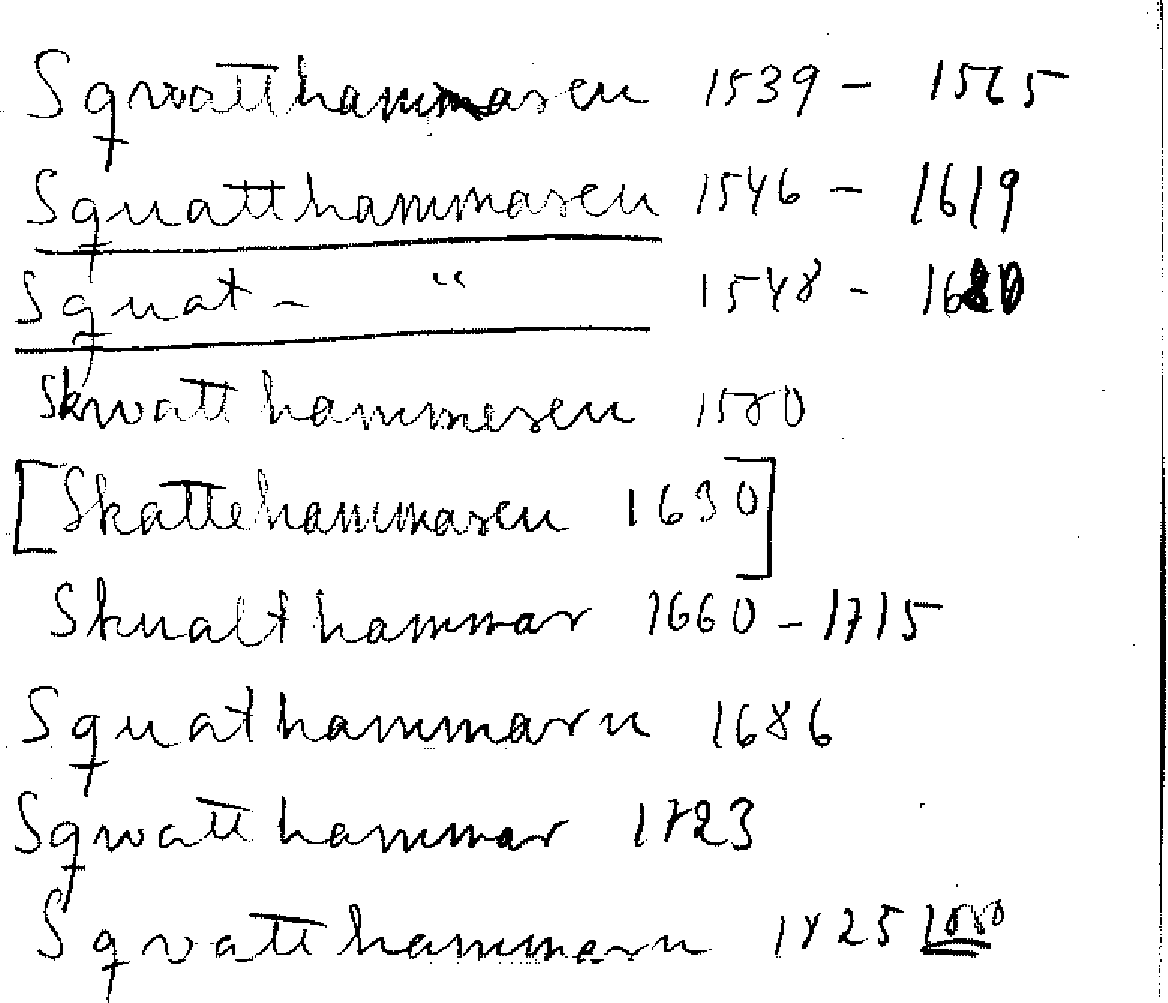 Sqwatthammaren 1539 - 1565
Squatthammaren 1546 - 1619
Squat - " 1548 - 1620
Skwatthammeren 1580
[Skattehammaren 1630]
Skualthammar 1660 - 1715
Squathammarn 1686
Sqwatthammar 1723
Sqvatthammarn 1825